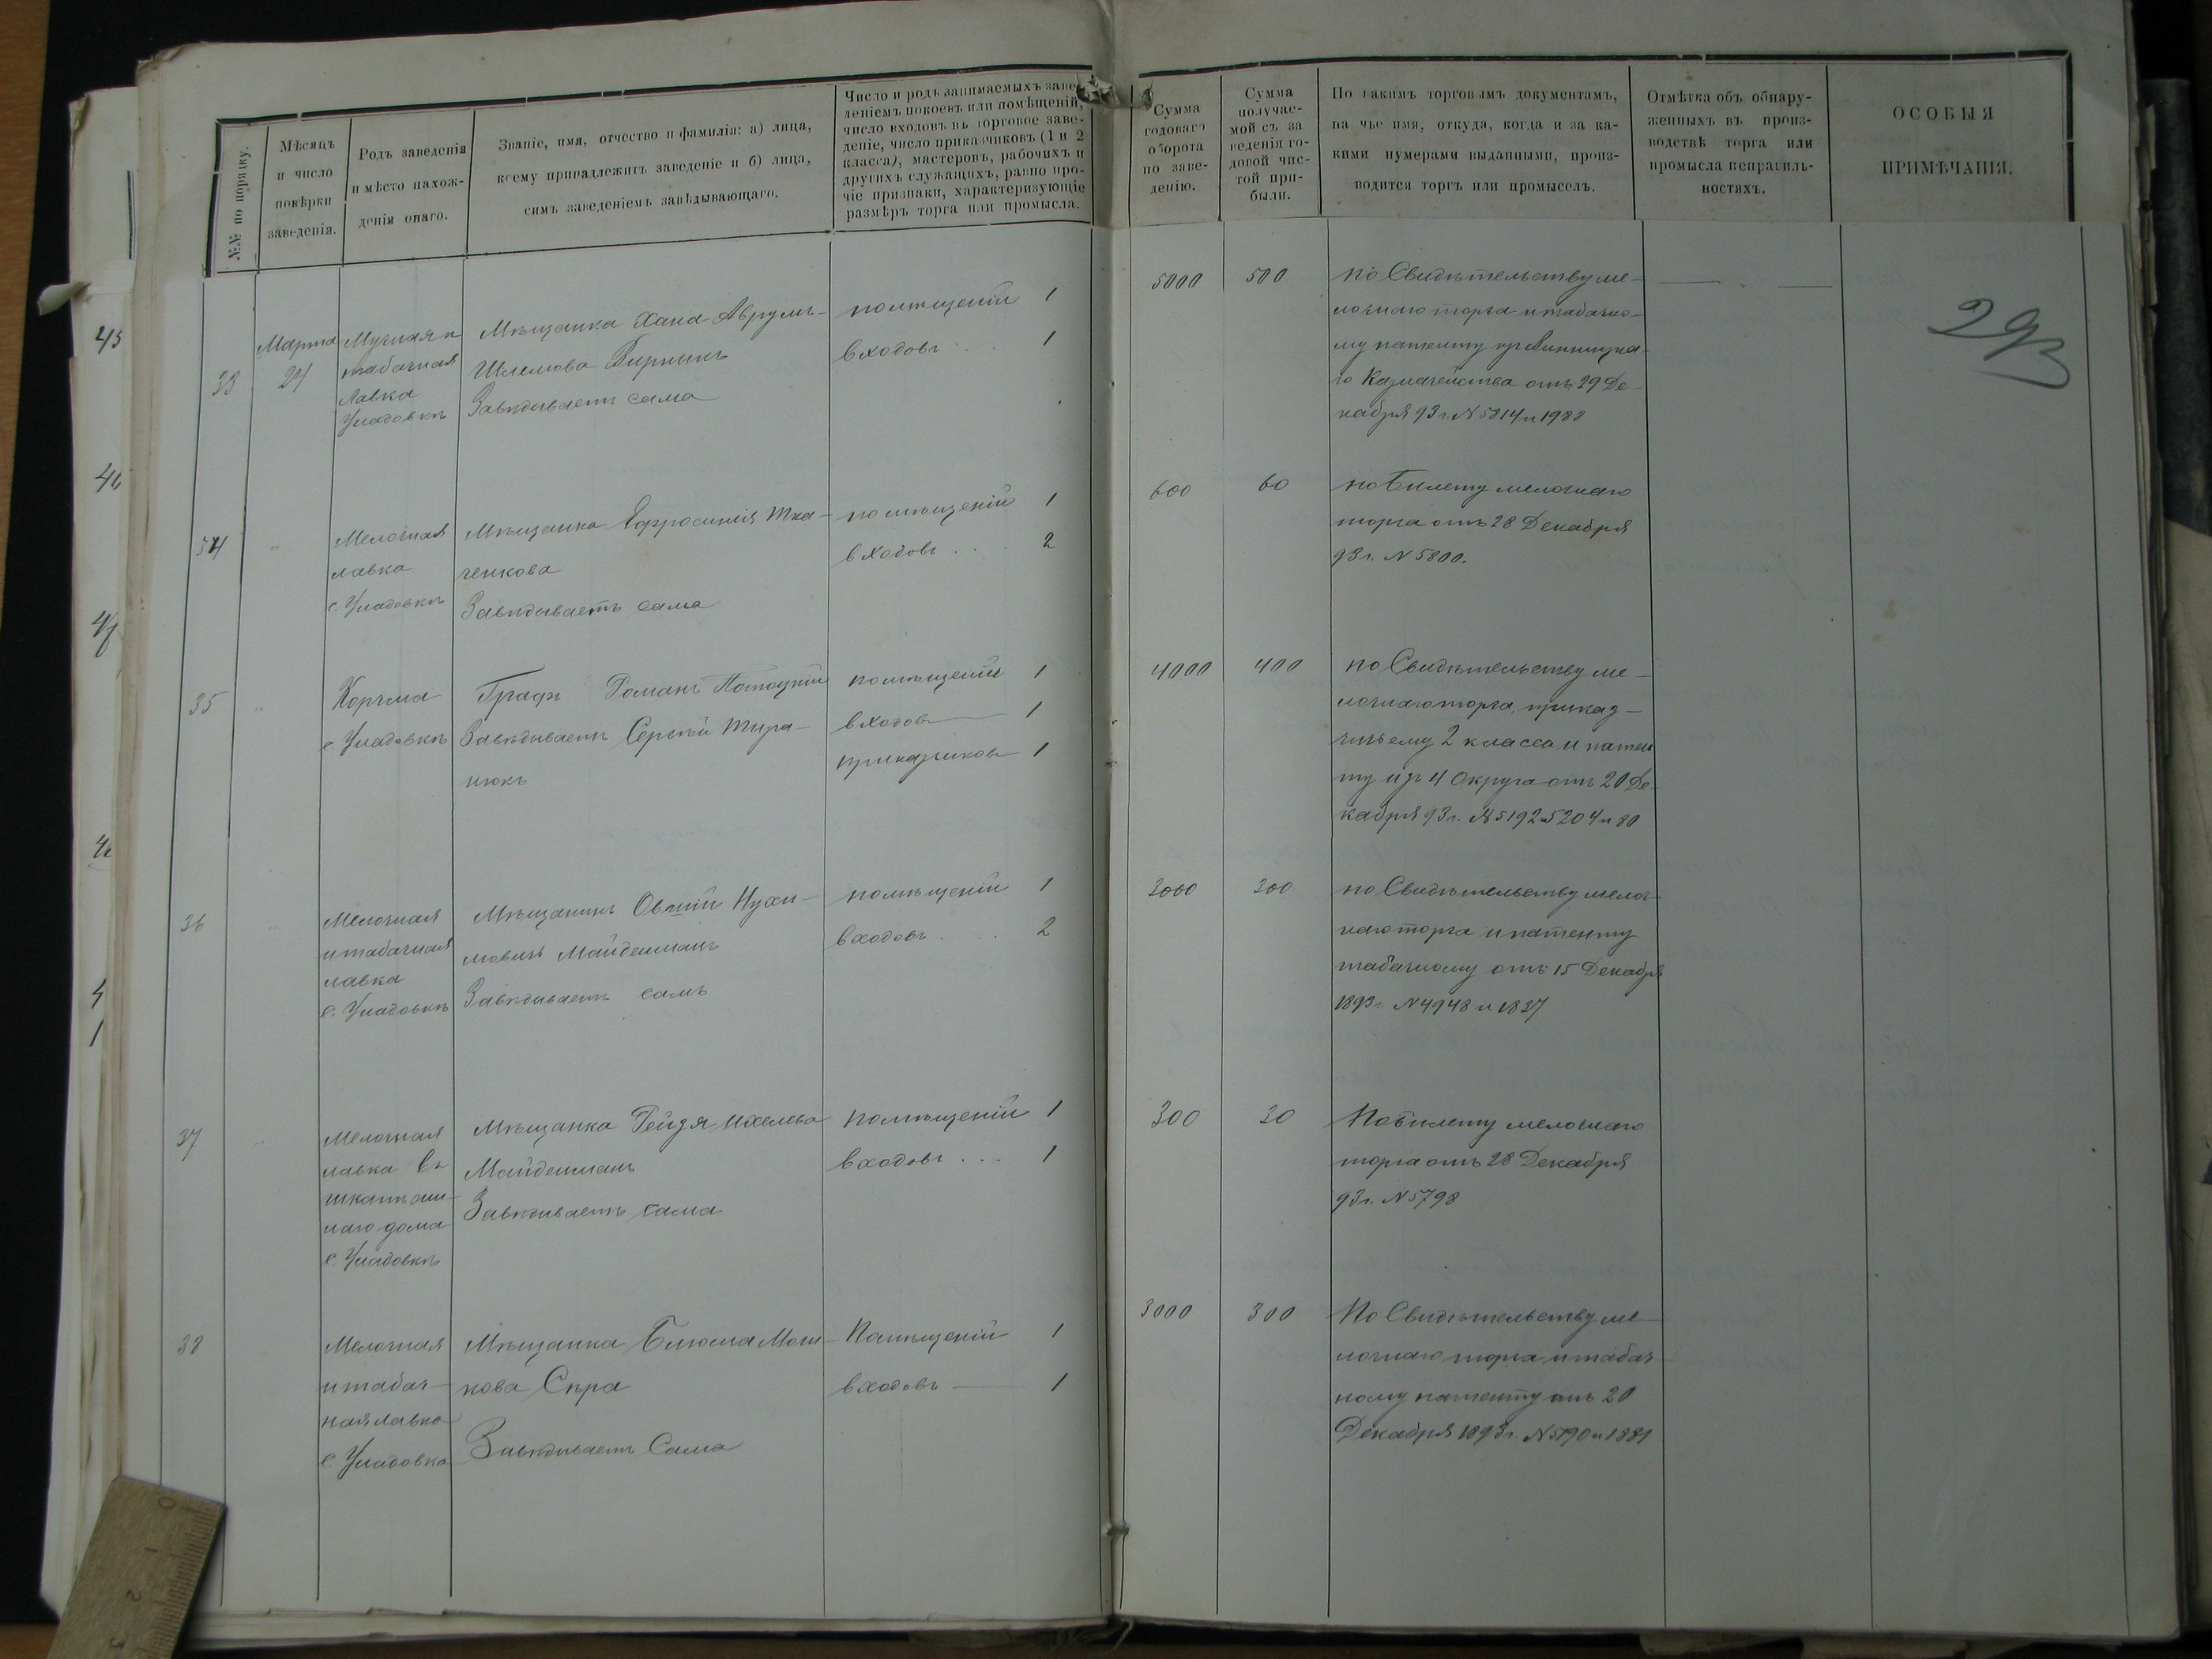 №№ по порядку.
Мѣсяцъ
и число
повѣрки
заведенія.
Родъ заведенія
и мѣсто нахож-
денія онаго.
Званіе, имя, отчество и фамилія: а) лица,
коему принадлежитъ заведеніе и б) лица,
симъ заведеніемъ завѣдывающаго.
Число и родъ занимаемыхъ заве-
деніемъ покоевъ или помѣщеній,
число входовъ въ торговое заве-
деніе, число приказчиковъ (1 и 2
класса), мастеровъ, рабочихъ и
другихъ служащихъ, равно про-
чіе признаки, характеризующіе
размѣръ торга или промысла.
Сумма
годоваго
оборота
по заве-
денію.
Сумма
получае-
мой съ за
веденія го-
довой чис-
той при-
были.
По какимъ торговымъ документамъ,
на чье имя, откуда, когда и за ка-
кими нумерами выданными, произ-
водится торгъ или промыселъ.
Отмѣтка объ обнару-
женныхъ въ произ-
водствѣ торга или
промысла неправиль-
ностяхъ.
ОСОБЫЯ
ПРИМѢЧАНІЯ.
293
33
Марта
21
Мучная и
табачная
лавка
Уладовкѣ
Мѣщанка Хана Аврумъ-
Шлемова
Завѣдываетъ сама
помѣщеній 1
входовъ 1
5000
500
по Свидѣтельству ме-
лочнаго торга и табачно-
му патенту изъ Винницка-
го Казначейства отъ 29 Де-
кабря 93 г. № 5814 и 1988
34
"
Мелочная
лавка
с. Уладовкѣ
Мѣщанка Ефросинія Тка-
ченкова
Завѣдываетъ сама
помѣщеній 1
входовъ 2
600
60
по билету мелочнаго
торга отъ 28 Декабря
93 г. № 5800.
35
"
Корчма
с. Уладовкѣ
Графъ Романъ Потоцкій
Завѣдываетъ Сергѣй Тира-
нюкъ
помѣщеній 1
входовъ 1
приказчиковъ 1
4000
400
по Свидѣтельству ме-
лочнаго торга, приказ-
чичьему 2 класса и патен
ту изъ 4 Округа отъ 20 Де-
кабря 93 г. № 5192 и 5204 и 80
36
"
Мелочная
и табачная
лавка
с. Уладовкѣ
Мѣщанинъ Овшій Нухи-
мовичъ Майденманъ
Завѣдываетъ самъ
помѣщеній 1
входовъ 2
3000
300
по Свидѣтельству мелоч-
наго торга и патенту
табачному отъ 15 Декабря
1893 г. № 4948 и 1837
37
"
Мелочная
лавка въ
дома
с. Уладовкѣ
Мѣщанка Рейзя Ихелева
Майденманъ
Завѣдываетъ сама
помѣщеній 1
входовъ 1
300
30
По билету мелочнаго
торга отъ 28 Декабря
93 г. № 5798
38
Мелочная
и табач-
ная лавка
с. Уладовка
Мѣщанка Блюма Мош-
кова Сѣра
Завѣдываетъ Сама
Помѣщеній 1
входовъ 1
3000
300
По Свидѣтельству ме-
лочнаго торга и табач
ному патенту отъ 20
Декабря 1893 г. № 5190 и 1881